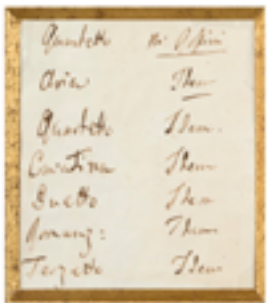 Quartetto
Aria Idem
Quartetto Idem.
Cavatina Idem
Duetto Idem
Romanz: Idem
Terzetto Idem